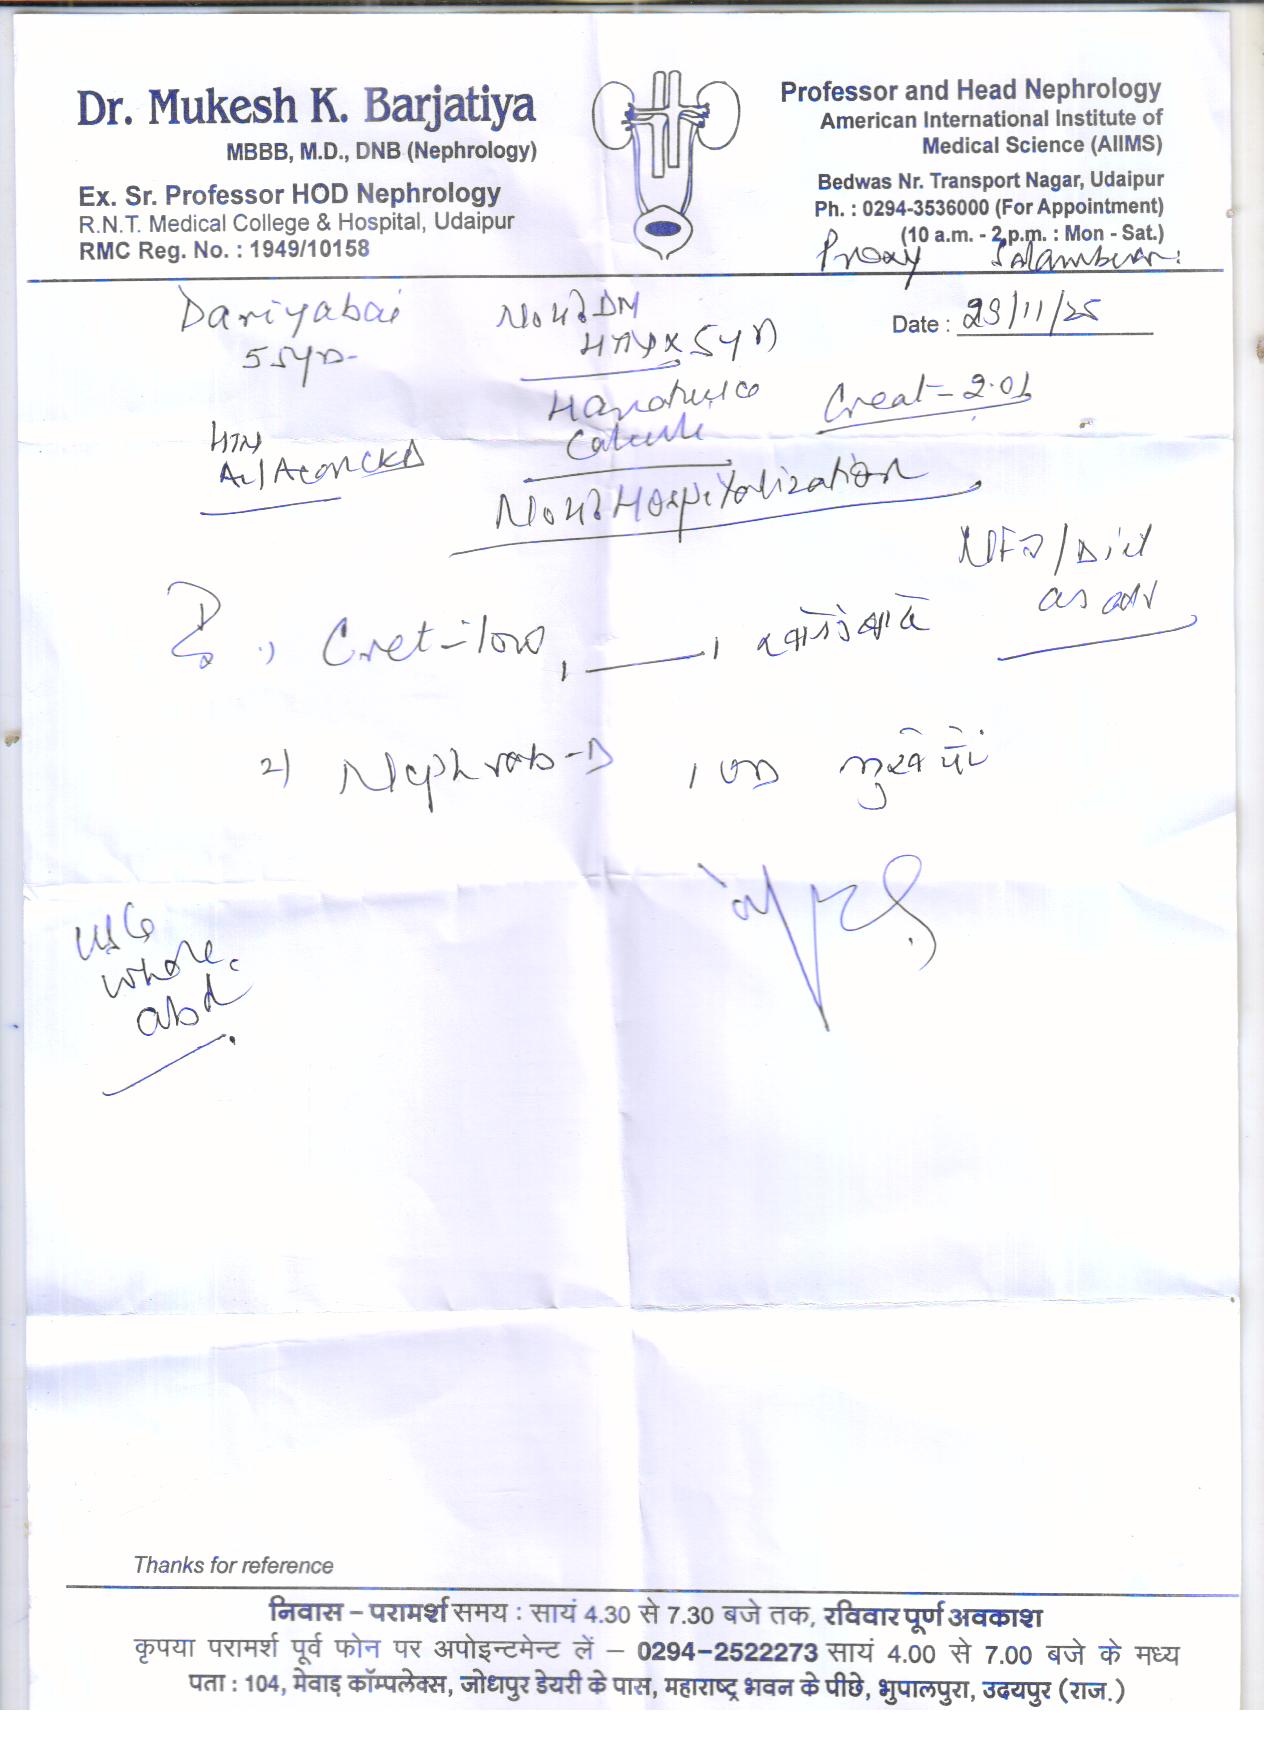 Dr. Mukesh K. Barjatiya
MBBB, M.D., DNB (Nephrology)
Ex. Sr. Professor HOD Nephrology
R.N.T. Medical College & Hospital, Udaipur
RMC Reg. No. : 1949/10158
Professor and Head Nephrology
American International Institute of
Medical Science (AIIMS)
Bedwas Nr. Transport Nagar, Udaipur
Ph. : 0294-3536000 (For Appointment)
(10 a.m. - 2.p.m. : Mon - Sat.)
Proxy
Dariyabai
55yr
DM
HTN x 5yr
Date : 29/11/25
Creat - 2.01
HTN
CKD
Hospitalization
Diet
as adv
1) Cret-low
2) Nephrob-D
1 OD सुबह में
USG
whole
abd
Thanks for reference
निवास – परामर्श समय : सायं 4.30 से 7.30 बजे तक, रविवार पूर्ण अवकाश
कृपया परामर्श पूर्व फोन पर अपोइन्टमेन्ट लें – 0294-2522273 सायं 4.00 से 7.00 बजे के मध्य
पता : 104, मेवाड़ कॉम्पलेक्स, जोधपुर डेयरी के पास, महाराष्ट्र भवन के पीछे, भुपालपुरा, उदयपुर (राज.)